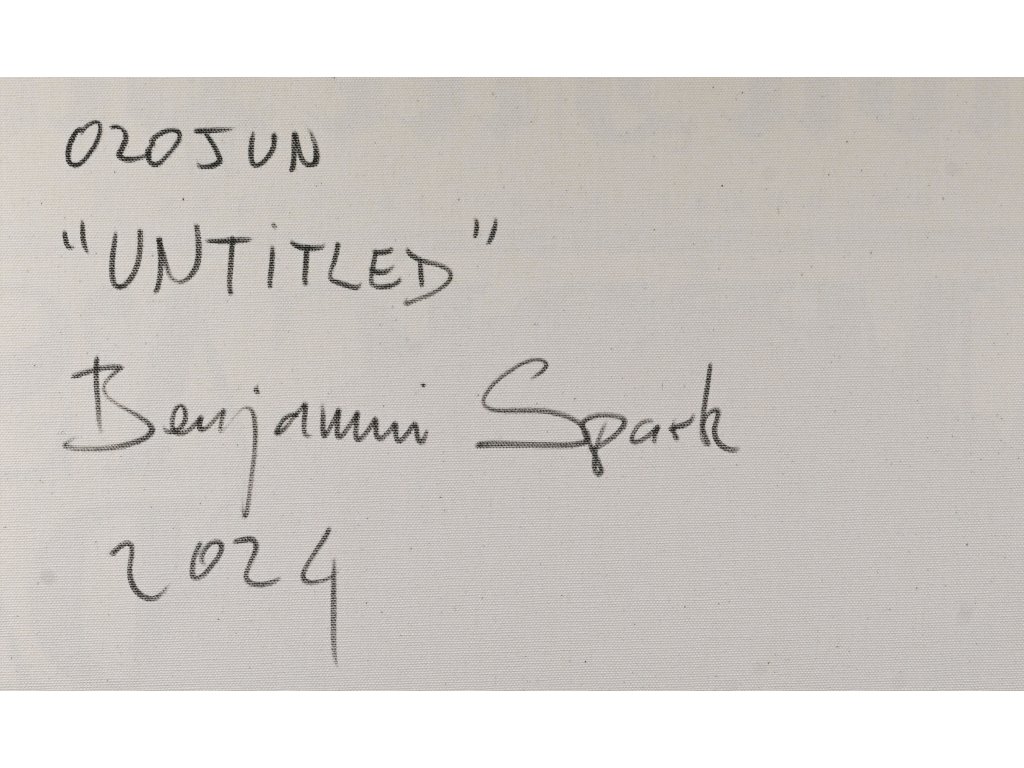 020JUN
"UNTiTLED"
Benjamin Spark
2024